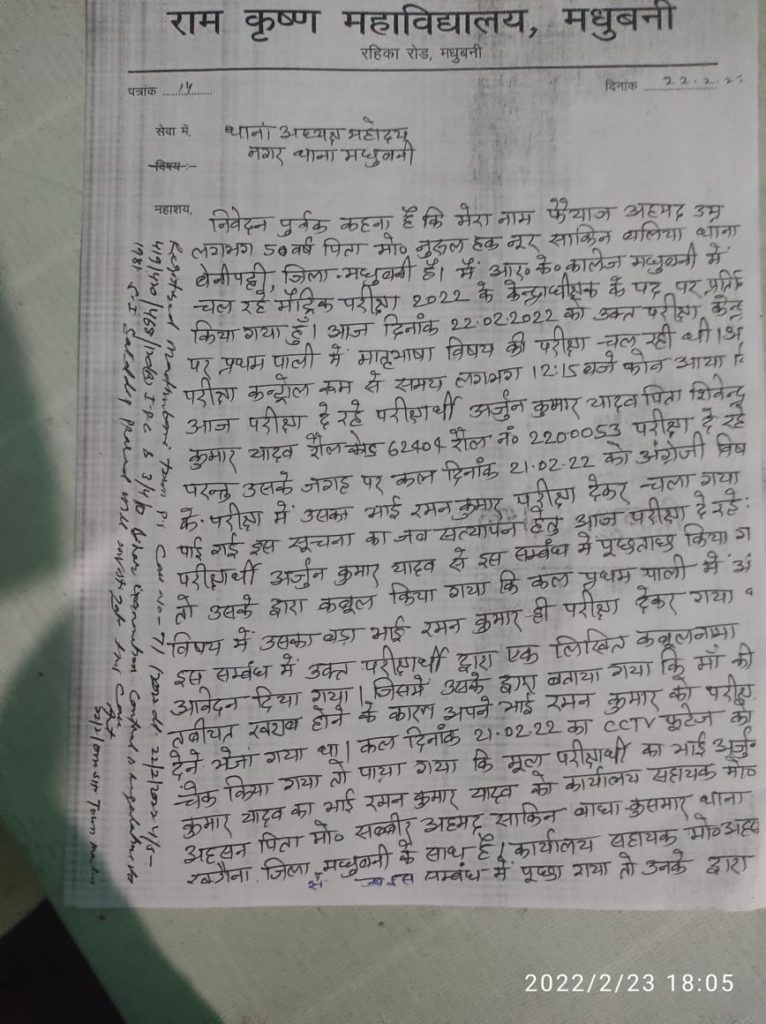 राम कृष्ण महाविद्यालय, मधुबनी
रहिका रोड, मधुबनी
पत्रांक ....14....
दिनांक 22.2.2
सेवा में,
थाना अध्यक्ष महोदय
नगर थाना मधुबनी
विषय :-
महाशय,
निवेदन पुर्वक कहना है कि मेरा नाम फैयाज अहमद उम्र
लगभग 50 वर्ष पिता मो० नुरुल हक नूर साकिन बलिया थाना
बेनीपट्टी, जिला-मधुबनी है। मैं आर० के० कालेज मधुबनी में
चल रहे मैट्रिक परीक्षा 2022 के केन्द्राधीक्षक के पद पर
किया गया हुँ। आज दिनांक 22.02.2022 को उक्त परीक्षा केन्द्र
पर प्रथम पाली में मातृभाषा विषय की परीक्षा चल रही थी।
परीक्षा कन्ट्रोल रूम से समय लगभग 12:15 बजे फोन आया
आज परीक्षा दे रहे परीक्षार्थी अर्जुन कुमार यादव पिता शिवेन्द्र
कुमार यादव रौल कोड 62404 रौल नं० 2200053 परीक्षा दे रहे
परन्तु उसके जगह पर कल दिनांक 21.02.22 को अंग्रेजी विष
के परीक्षा में उसका भाई रमन कुमार परीक्षा देकर चला गया
पाई गई इस सूचना का जब सत्यापन हेतु आज परीक्षा दे रहे
परीक्षार्थी अर्जुन कुमार यादव से इस सम्बंध में पूछताछ किया ग
तो उसके द्वारा कबूल किया गया कि कल प्रथम पाली में अं
विषय में उसका बड़ा भाई रमन कुमार ही परीक्षा देकर गया
इस सम्बंध में उक्त परीक्षार्थी द्वारा एक लिखित कबूलनामा
आवेदन दिया गया। जिसमें उसके द्वारा बताया गया कि माँ की
तबीयत खराब होने के कारण अपने भाई रमन कुमार को परीक्षा
देने भेजा गया था। कल दिनांक 21.02.22 का CCTV फूटेज को
चेक किया गया तो पाया गया कि मूल परीक्षार्थी का भाई अर्जुन
कुमार यादव का भाई रमन कुमार यादव को कार्यालय सहायक मो०
अहसन पिता मो० सब्बीर अहमद साकिन बाघा कुसमार थाना
जिला मधुबनी के साथ है। कार्यालय सहायक मो०
से जब इस सम्बंध में पूछा गया तो उनके द्वारा
Registered Madhubani Town P.S Case No-71/2022 dt 22/2/2022 U/S-
419/420/468/120(B) I.P.C & 3/4/10 Bihar Examination Control
S.I will investigate this case
2022/2/23 18:05